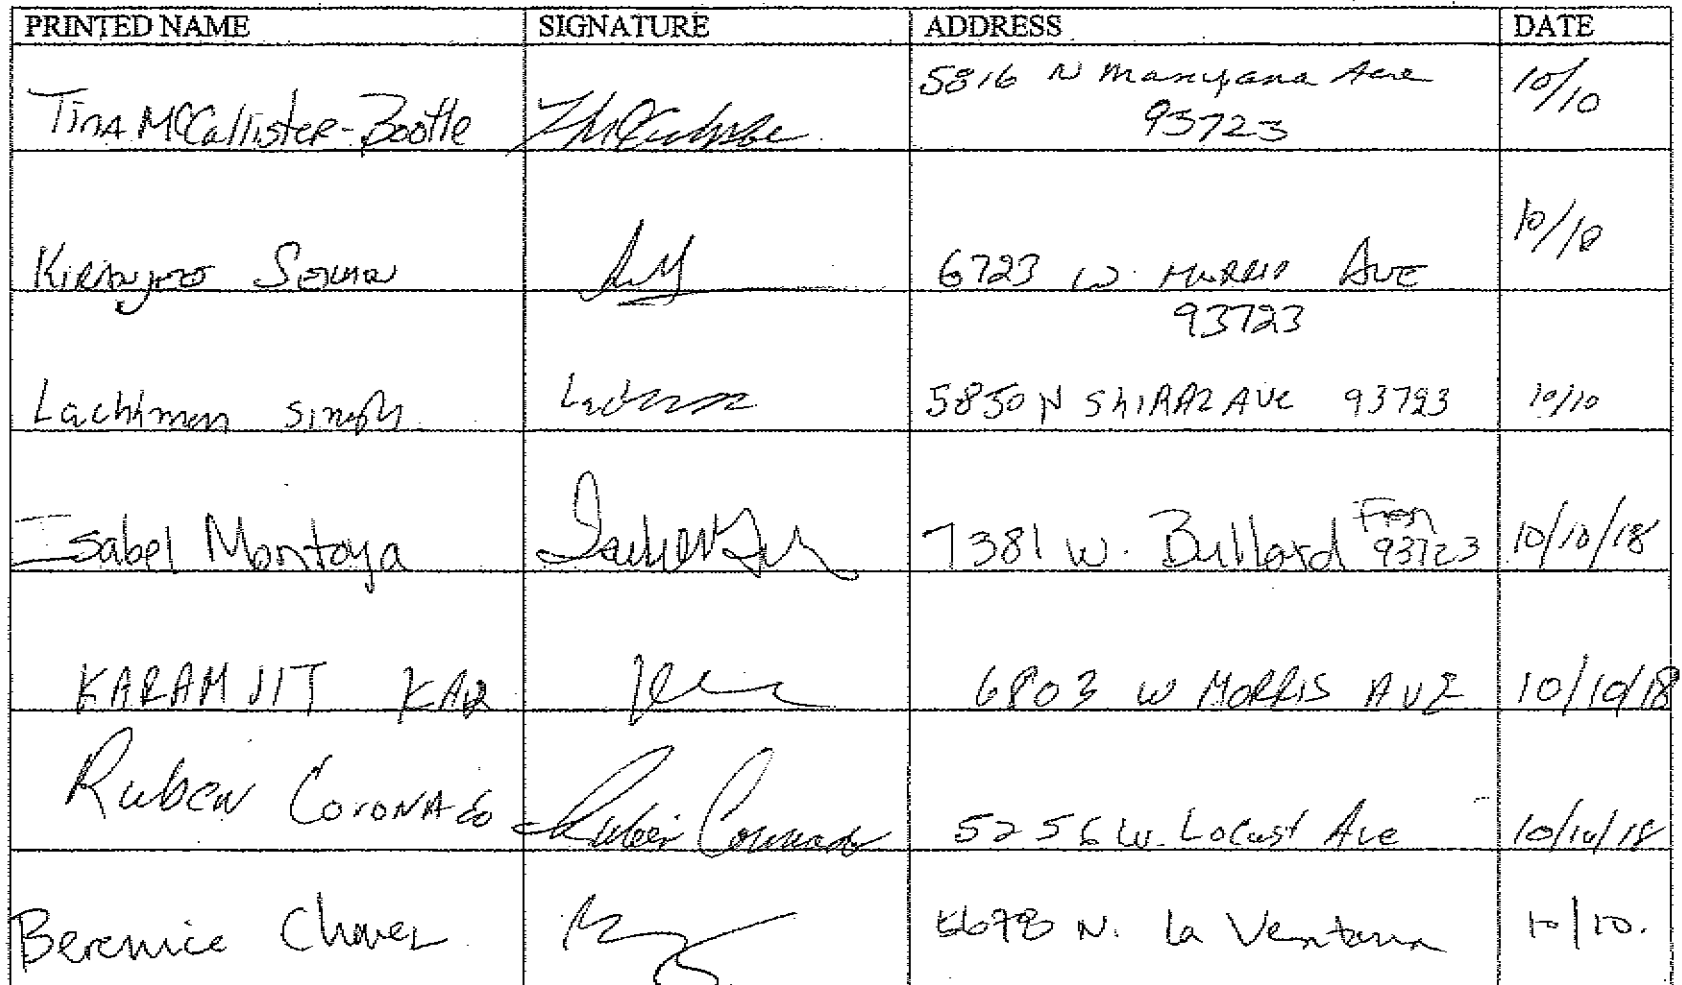 PRINTED NAME SIGNATURE ADDRESS DATE
Tina McCallister-Bootle 5816 N Ave 10/10
93723
10/10
6723 W. Ave
93723
Lachhman Singh 5850 N Shiraz Ave 93723 10/10
Isabel Montoya 7381 W. Bullard Fren 93723 10/10/18
KARAMJIT KAR 6803 W MORRIS AVE 10/10/18
Ruben Coronado Ruben Coronado 5256 W. Locust Ave 10/10/18
Berenice Chavez N. La Ventana 10/10.